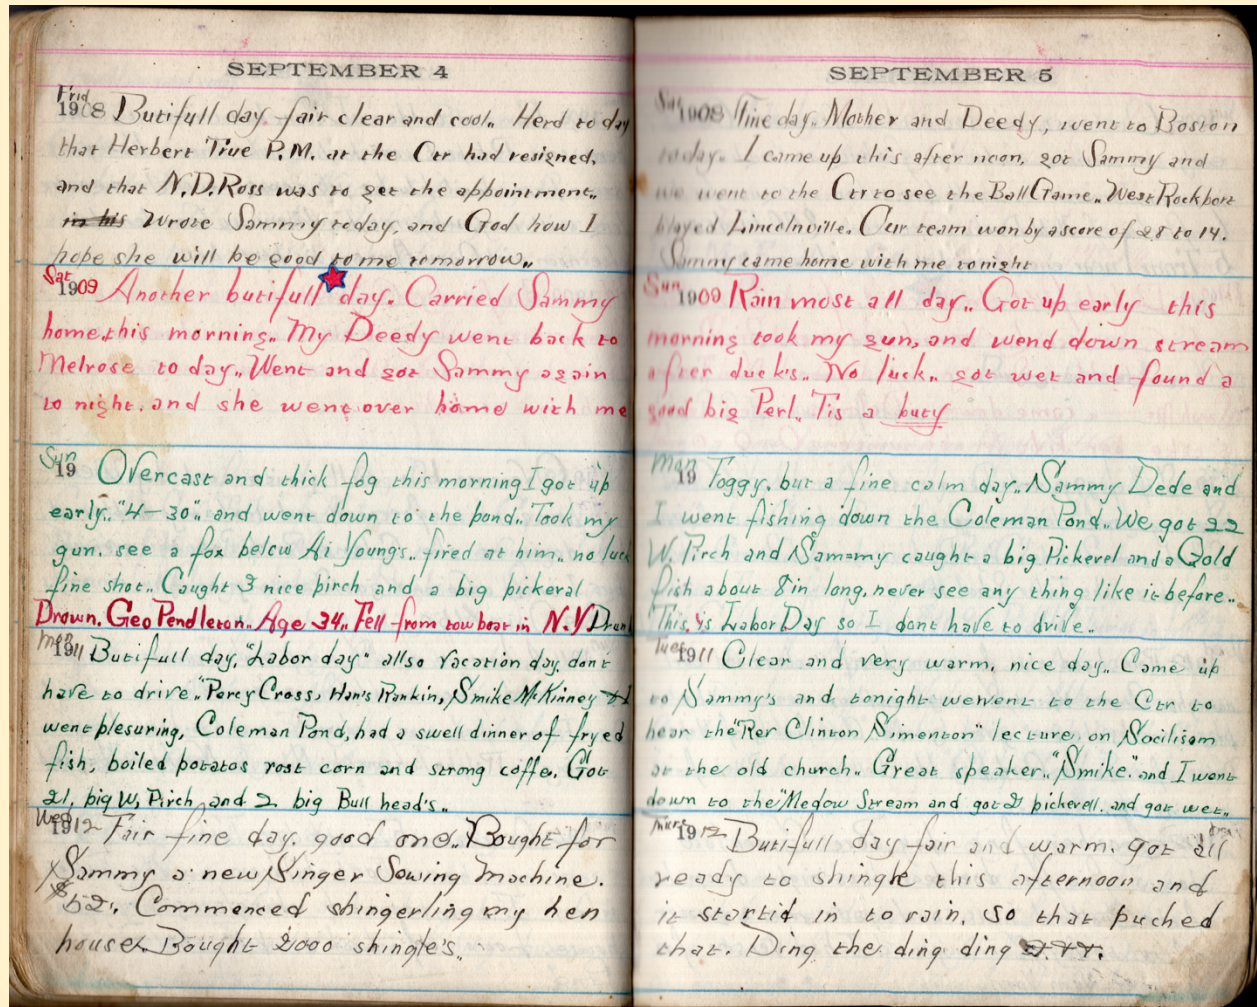 SEPTEMBER 4
Frid
1908 Butifull day fair clear and cool.. Herd to day
that Herbert True P.M. at the Ctr had resigned,
and that N.D. Ross was to get the appointment..
in his Wrote Sammy today, and God how I
hope she will be good to me tomorrow..
Sat
1909 Another butifull day. Carried Sammy
home, this morning.. My Deedy went back to
Melrose to day.. Went and got Sammy again
to night, and she went over home with me
Sun
19 Overcast and thick fog this morning I got up
early.. "4-30".. and went down to the pond.. Took my
gun, see a fox below Ai Young's.. fired at him, no luck
fine shot.. Caught 3 nice pirch and a big pickeral
Drown. Geo Pendleton.. Age 34.. Fell from tow boat in N.Y Drun
Mon
1911 Butifull day, "Labor day" allso vacation day, don't
have to drive. "Percy Cross, Han's Rankin, Smike McKinney & I
went plesuring, Coleman Pond, had a swell dinner of fryed
fish, boiled potatos rost corn and strong coffe. Got
21, big W, Pirch and 2 big Bull head's..
Wed
1912 Fair fine day. good one. Bought for
Sammy a new Singer Sowing Machine.
$52. Commenced shingerling my hen
house. Bought 2000 shingle's..
SEPTEMBER 5
Sat
1908 Fine day.. Mother and Deedy, went to Boston
today. I came up this after noon, got Sammy and
we went to the Ctr to see the Ball Game.. West Rockport
played Lincolnville. Our team won by a score of 28 to 14.
Sammy came home with me tonight
Sun
1909 Rain most all day.. Got up early this
morning took my gun, and wend down stream
after duck's.. No luck.. got wet and found a
good big Perl.. Tis a buty
Mon
19 Foggy, but a fine calm day.. Sammy Dede and
I went fishing down the Coleman Pond.. We got 22
W. Pirch and Sammy caught a big Pickerel and a Gold
fish about 8 in long, never see any thing like it before..
This is Labor Day so I dont have to drive.
Tues
1911 Clear and very warm, nice day.. Came up
to Sammy's and tonight we went to the Ctr to
hear the "Rer Clinton Simenton" lecture on Socilisam
at the old church.. Great speaker.. "Smike." and I went
down to the "Medow Stream and got 2 pickerell. and got wet..
Thurs
1912 Butifull day fair and warm. got all
ready to shingle this afternoon and
it startid in to rain, so that puched
that. Ding the ding ding